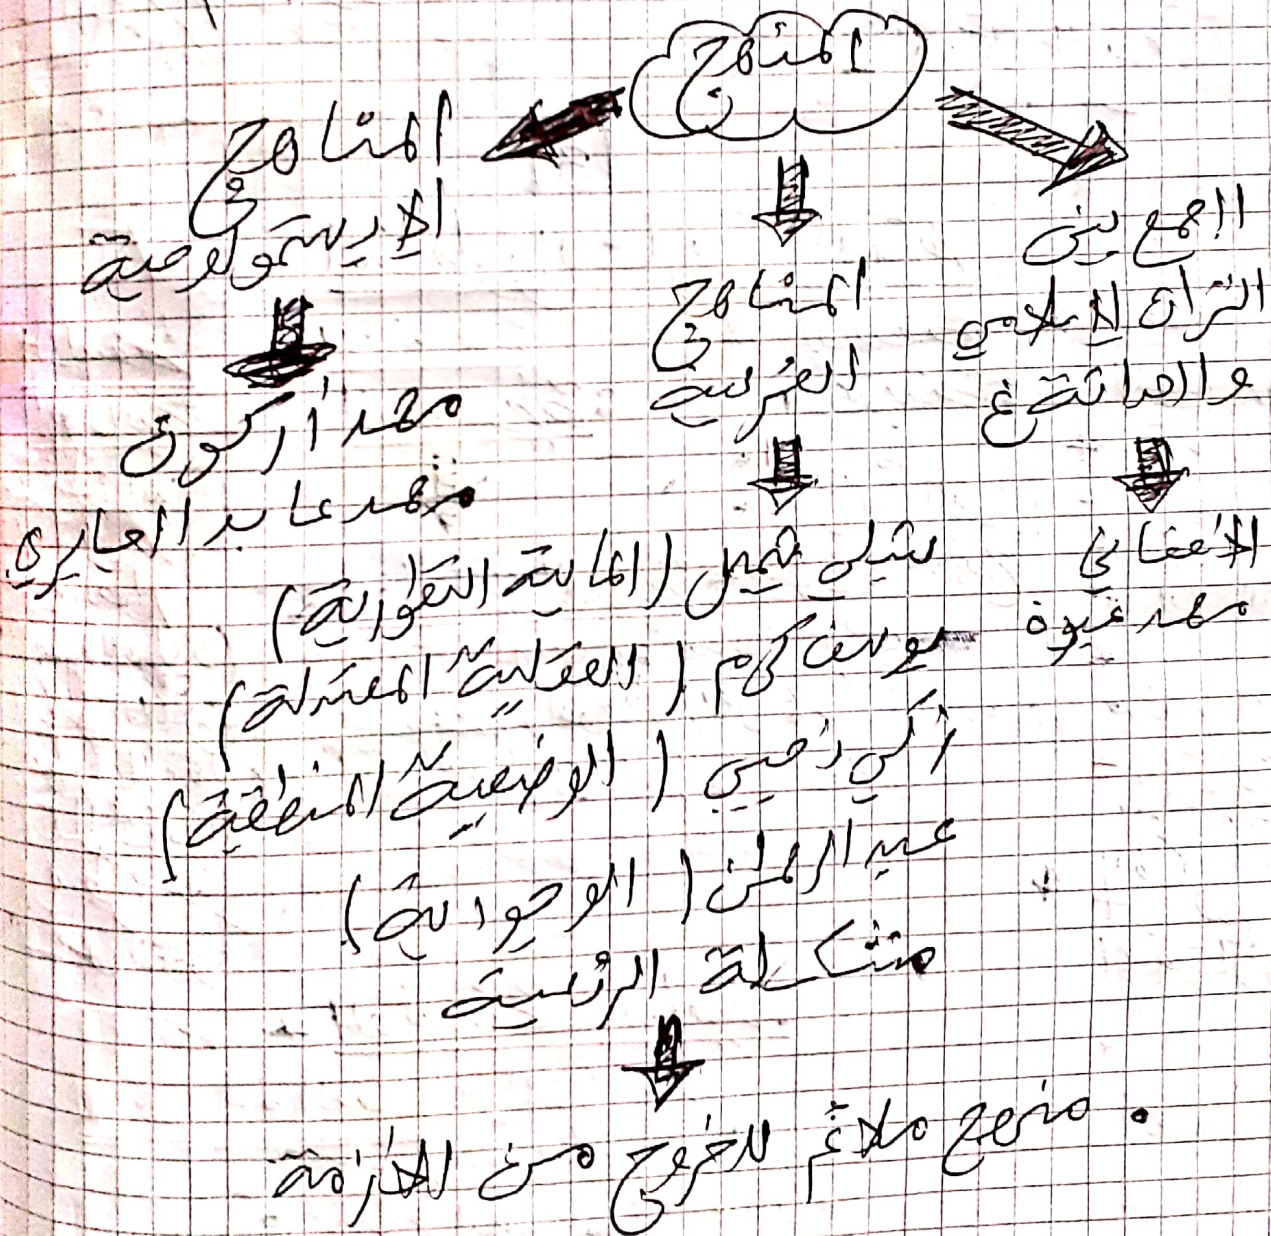 المناهج
الجمع بين
التراث الإسلامي
والحداثة غ
الأفغاني
محمد عبده
المناهج
الغربية
شبلي شميل (المادية التطورية)
يوسف كرم (العقلية المعتدلة)
زكي نجيب (الوضعية المنطقية)
عبد الرحمن (الوجودية)
المناهج
الإبستمولوجية
محمد أركون
محمد عابد الجابري
مشكلة الرئيسية
. منهج ملائم للخروج من الأزمة